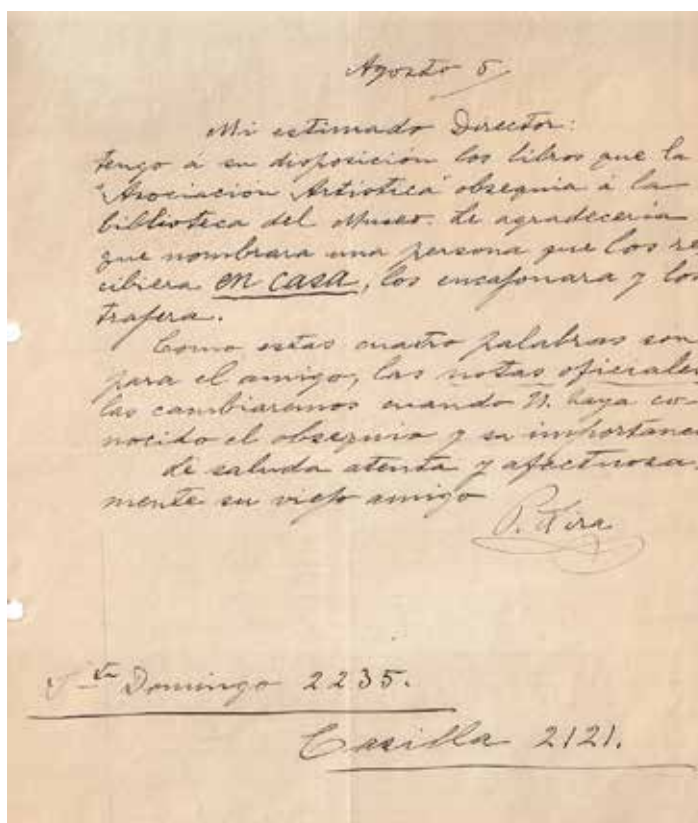 Agosto 5
Mi estimado Director:
tengo á su disposición los libros que la
"Asociación Artística" obsequia á la
biblioteca del Museo. Le agradecería
que nombrara una persona que los re
cibiera en casa, los encajonara y los
trajera.
Como estas cuatro palabras son
para el amigo, las notas oficiales
las cambiaremos cuando U. haya co-
nocido el obsequio y su importanc
Le saluda atenta y afectuosa-
mente su viejo amigo
P. Lira
Domingo 2235.
Casilla 2121.